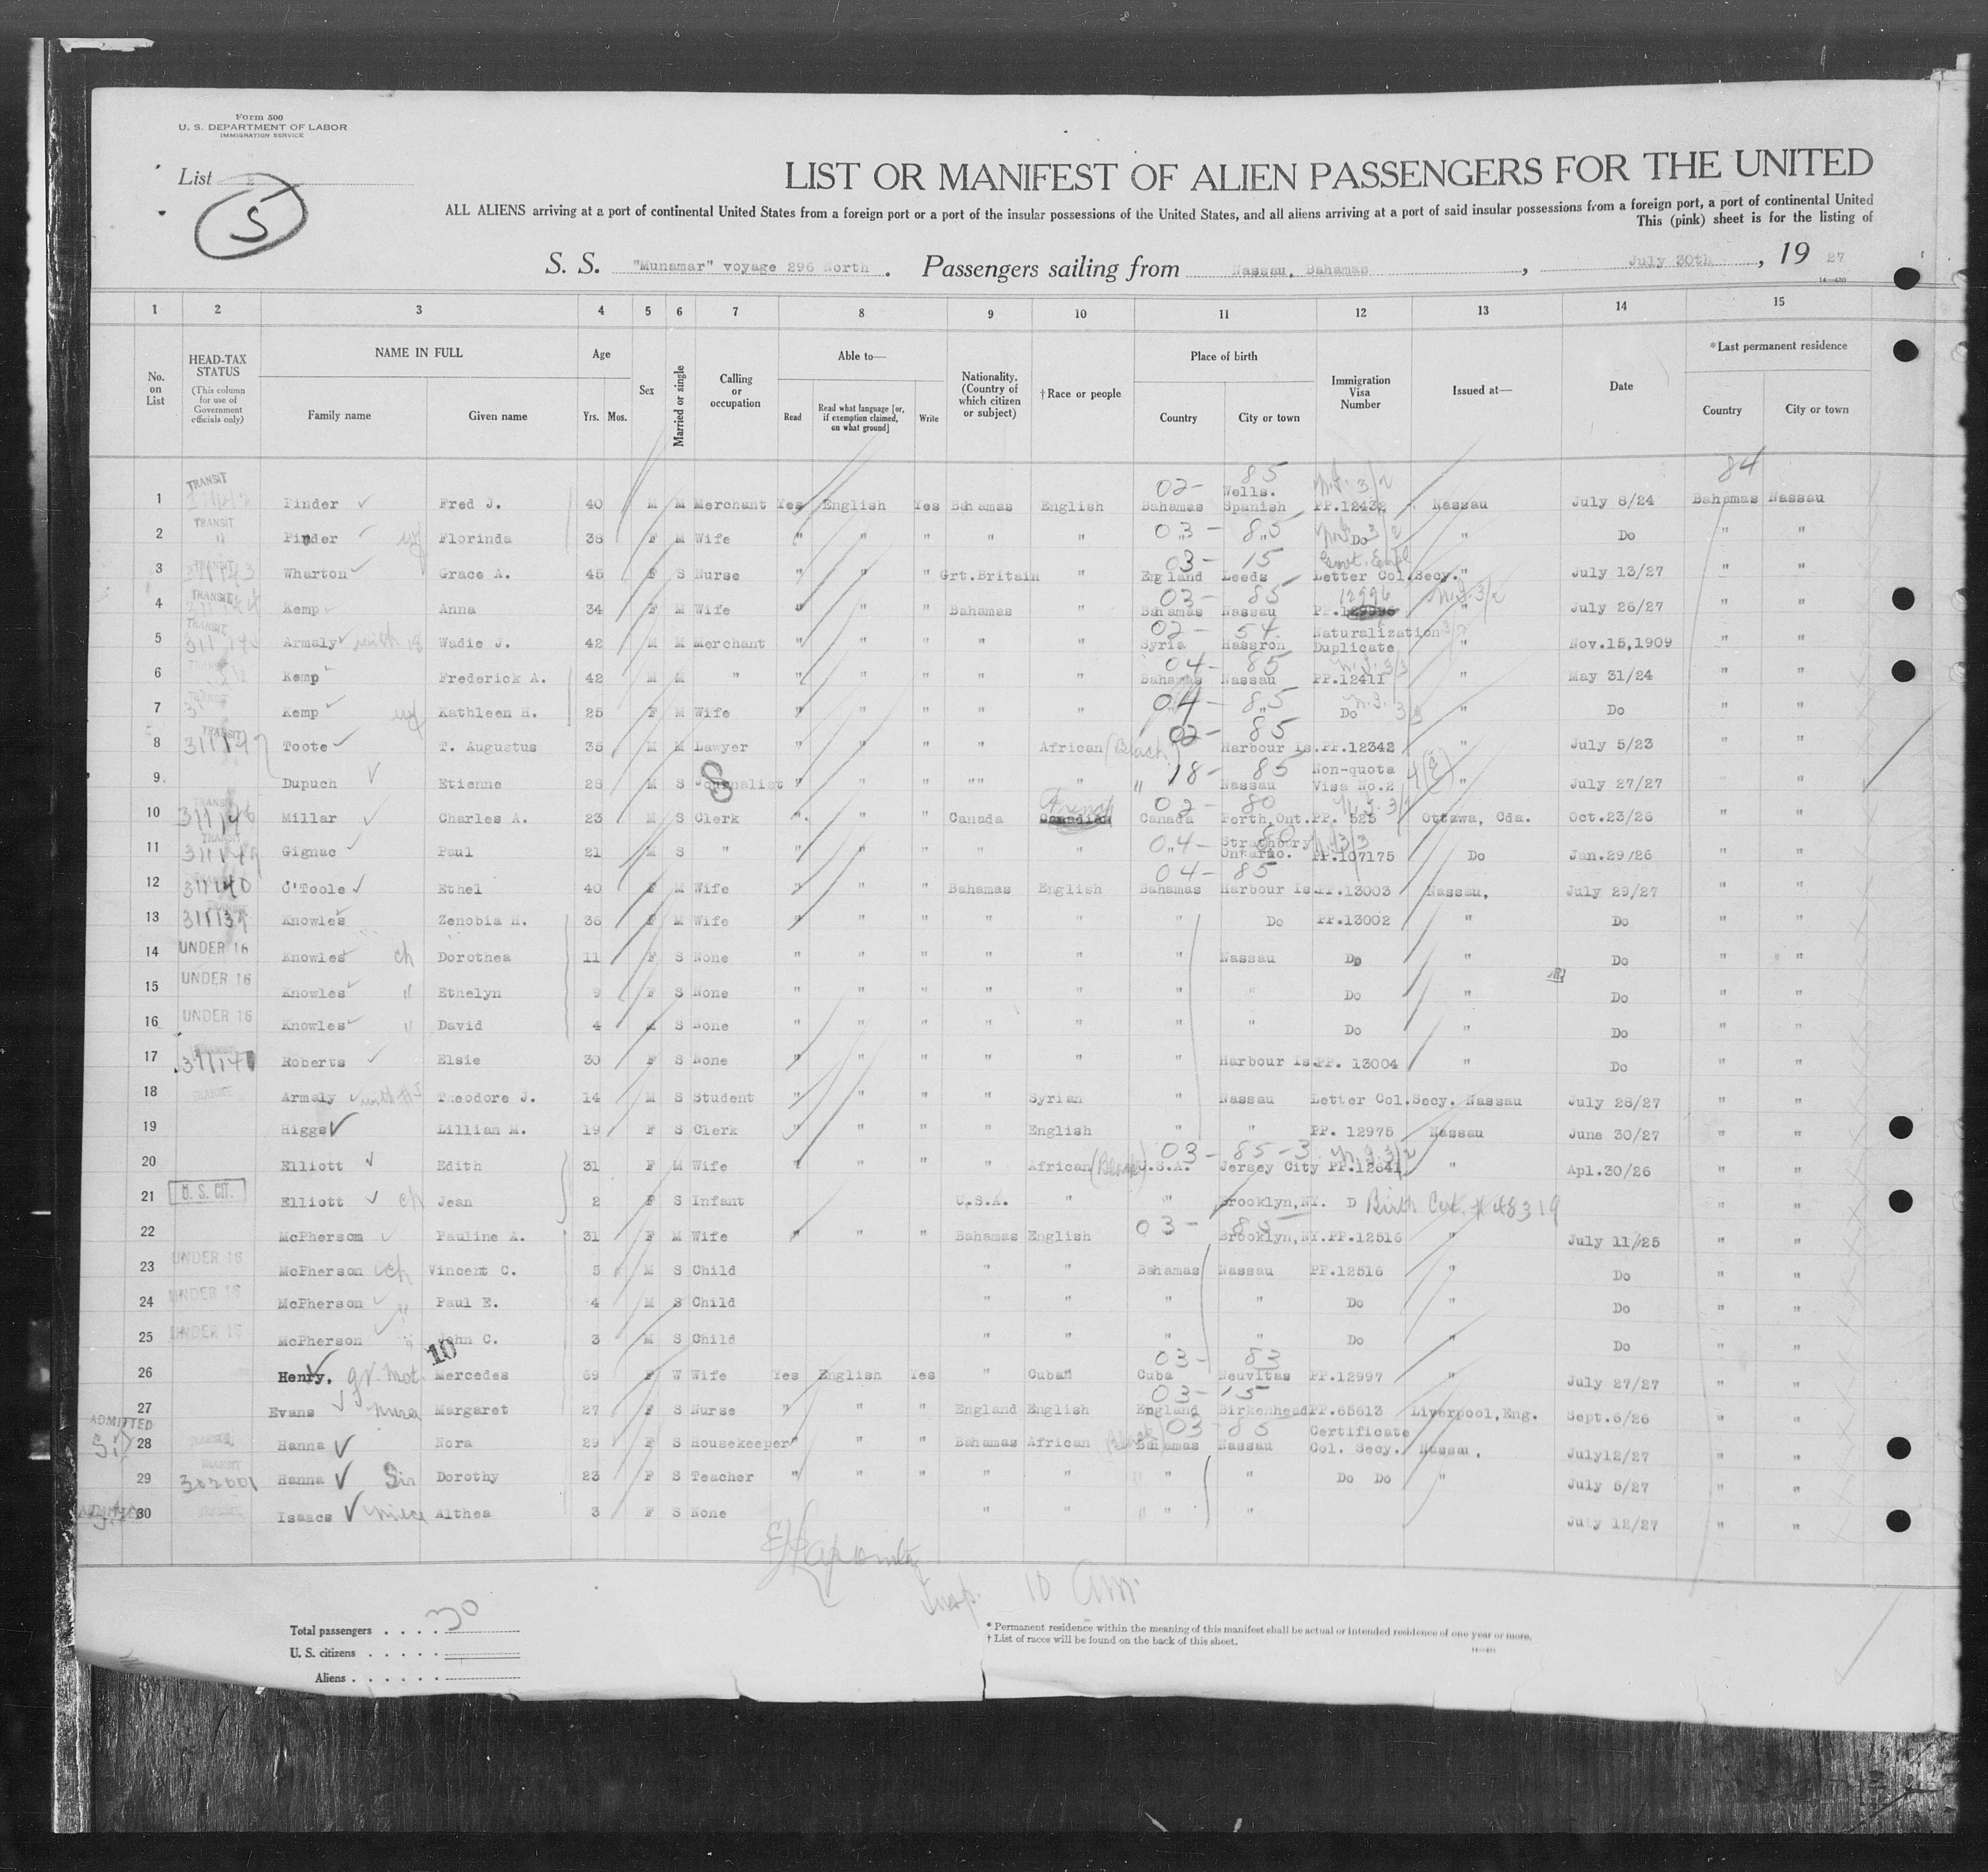 Form 500
U. S. DEPARTMENT OF LABOR
IMMIGRATION SERVICE
List 2
5
LIST OR MANIFEST OF ALIEN PASSENGERS FOR THE UNITED
ALL ALIENS arriving at a port of continental United States from a foreign port or a port of the insular possessions of the United States, and all aliens arriving at a port of said insular possessions from a foreign port, a port of continental United
This (pink) sheet is for the listing of
S. S. "Munamar" voyage 296 North. Passengers sailing from Nassau, Bahamas, July 30th, 19 27
1 2 3 4 5 6 7 8 9 10 11 12 13 14 15
No. on List
HEAD-TAX STATUS (This column for use of Government officials only)
NAME IN FULL Family name Given name
Age Yrs. Mos.
Sex
Married or single
Calling or occupation
Able to— Read Read what language [or, if exemption claimed, on what ground] Write
Nationality. (Country of which citizen or subject)
†Race or people
Place of birth Country City or town
Immigration Visa Number
Issued at—
Date
*Last permanent residence Country City or town
84
02- 85
1 TRANSIT Pinder Fred J. 40 M M Merchant Yes English Yes Bahamas English Bahamas Wells. Spanish PP.12432 Nassau July 6/24 Bahamas Nassau
03- 85
2 TRANSIT " Pinder Florinda 38 F M Wife " " " " " " " Do " Do " "
03- 15 Govt. Empl
3 TRANSIT Wharton Grace A. 45 F S Nurse " " " Grt.Britain " England Leeds Letter Col.Secy." July 13/27 " "
03- 85 12996
4 TRANSIT Kemp Anna 34 F M Wife " " " Bahamas " Bahamas Nassau PP. " July 26/27 " "
02- 54
5 TRANSIT Armaly with 18 Wadie J. 42 M M Merchant " " " " " Syria Hasron Naturalization Duplicate " Nov.15,1909 " "
04- 85
6 Kemp Frederick A. 42 M M " " " " " " Bahamas Nassau PP.12411 " May 31/24 " "
04- 85
7 Kemp Kathleen H. 25 F M Wife " " " " " " " Do " Do " "
02- 85
8 TRANSIT Toote T. Augustus 35 M M Lawyer " " " " African (Black) Harbour Is. PP.12342 " July 5/23 " "
18- 85
9 Dupuch Etienne 28 M S Journalist " " " "" " " Nassau Non-quota Visa No.2 4(E) " July 27/27 " "
02- 80
10 TRANSIT 311146 Millar Charles A. 23 M S Clerk " " " Canada French Canadian Canada Perth,Ont. PP. 525 Ottawa, Cda. Oct.23/26 " "
04- 80
11 TRANSIT Gignac Paul 21 M S " " " " " " " Ontario. PP.107175 Do Jan.29/26 " "
04- 85
12 311140 O'Toole Ethel 40 F M Wife " " " Bahamas English Bahamas Harbour Is. PP.13003 Nassau, July 29/27 " "
13 311139 Knowles Zenobia H. 36 F M Wife " " " " " " Do PP.13002 " Do " "
14 UNDER 16 Knowles ch Dorothea 11 F S None " " " " " " Nassau Do " Do " "
15 UNDER 16 Knowles " Ethelyn 9 F S None " " " " " " " Do " Do " "
16 UNDER 16 Knowles " David 4 M S None " " " " " " " Do " Do " "
17 Roberts Elsie 30 F S None " " " " " " Harbour Is. PP. 13004 " Do " "
18 TRANSIT Armaly with #5 Theodore J. 14 M S Student " " " " Syrian " Nassau Letter Col.Secy. Nassau July 28/27 " "
19 Higgs Lillian M. 19 F S Clerk " " " " English " " PP. 12975 Nassau June 30/27 " "
03- 85-3
20 Elliott Edith 31 F M Wife " " " " African (Black) U.S.A. Jersey City PP.12641 " Apl.30/26 " "
21 U. S. CIT. Elliott ch Jean 2 F S Infant U.S.A. " " Brooklyn,NY. D Birth Cert. #48319 " "
03- 85
22 McPherson Pauline A. 31 F M Wife " " " Bahamas English Brooklyn,NY. PP.12516 " July 11/25 " "
23 UNDER 16 McPherson ch Vincent C. 5 M S Child " " Bahamas Nassau PP.12516 " Do " "
24 UNDER 16 McPherson " Paul E. 4 M S Child " " " " Do " Do " "
25 UNDER 16 McPherson " John C. 3 M S Child " " " " Do " Do " "
10 03- 83
26 Henry, gr. Mot. Mercedes 69 F W Wife Yes English Yes " Cuban Cuba Neuvitas PP.12997 " July 27/27 " "
03- 15
27 Evans Nurse Margaret 27 F S Nurse " " " England English England Birkenhead PP.65613 Liverpool,Eng. Sept.6/26 " "
ADMITTED 03 85
28 Hanna Nora 29 F S Housekeeper " " " Bahamas African Black Bahamas Nassau Certificate Col. Secy. Nassau. July12/27 " "
29 TRANSIT 302001 Hanna Sis Dorothy 23 F S Teacher " " " " " " " Do Do " July 6/27 " "
ADMITTED
30 Isaacs niece Althea 3 F S None " " " " July 12/27 " "
Insp. 10 am.
Total passengers . . . . 30
U. S. citizens . . . . .
Aliens . . . . . .
* Permanent residence within the meaning of this manifest shall be actual or intended residence of one year or more.
† List of races will be found on the back of this sheet.